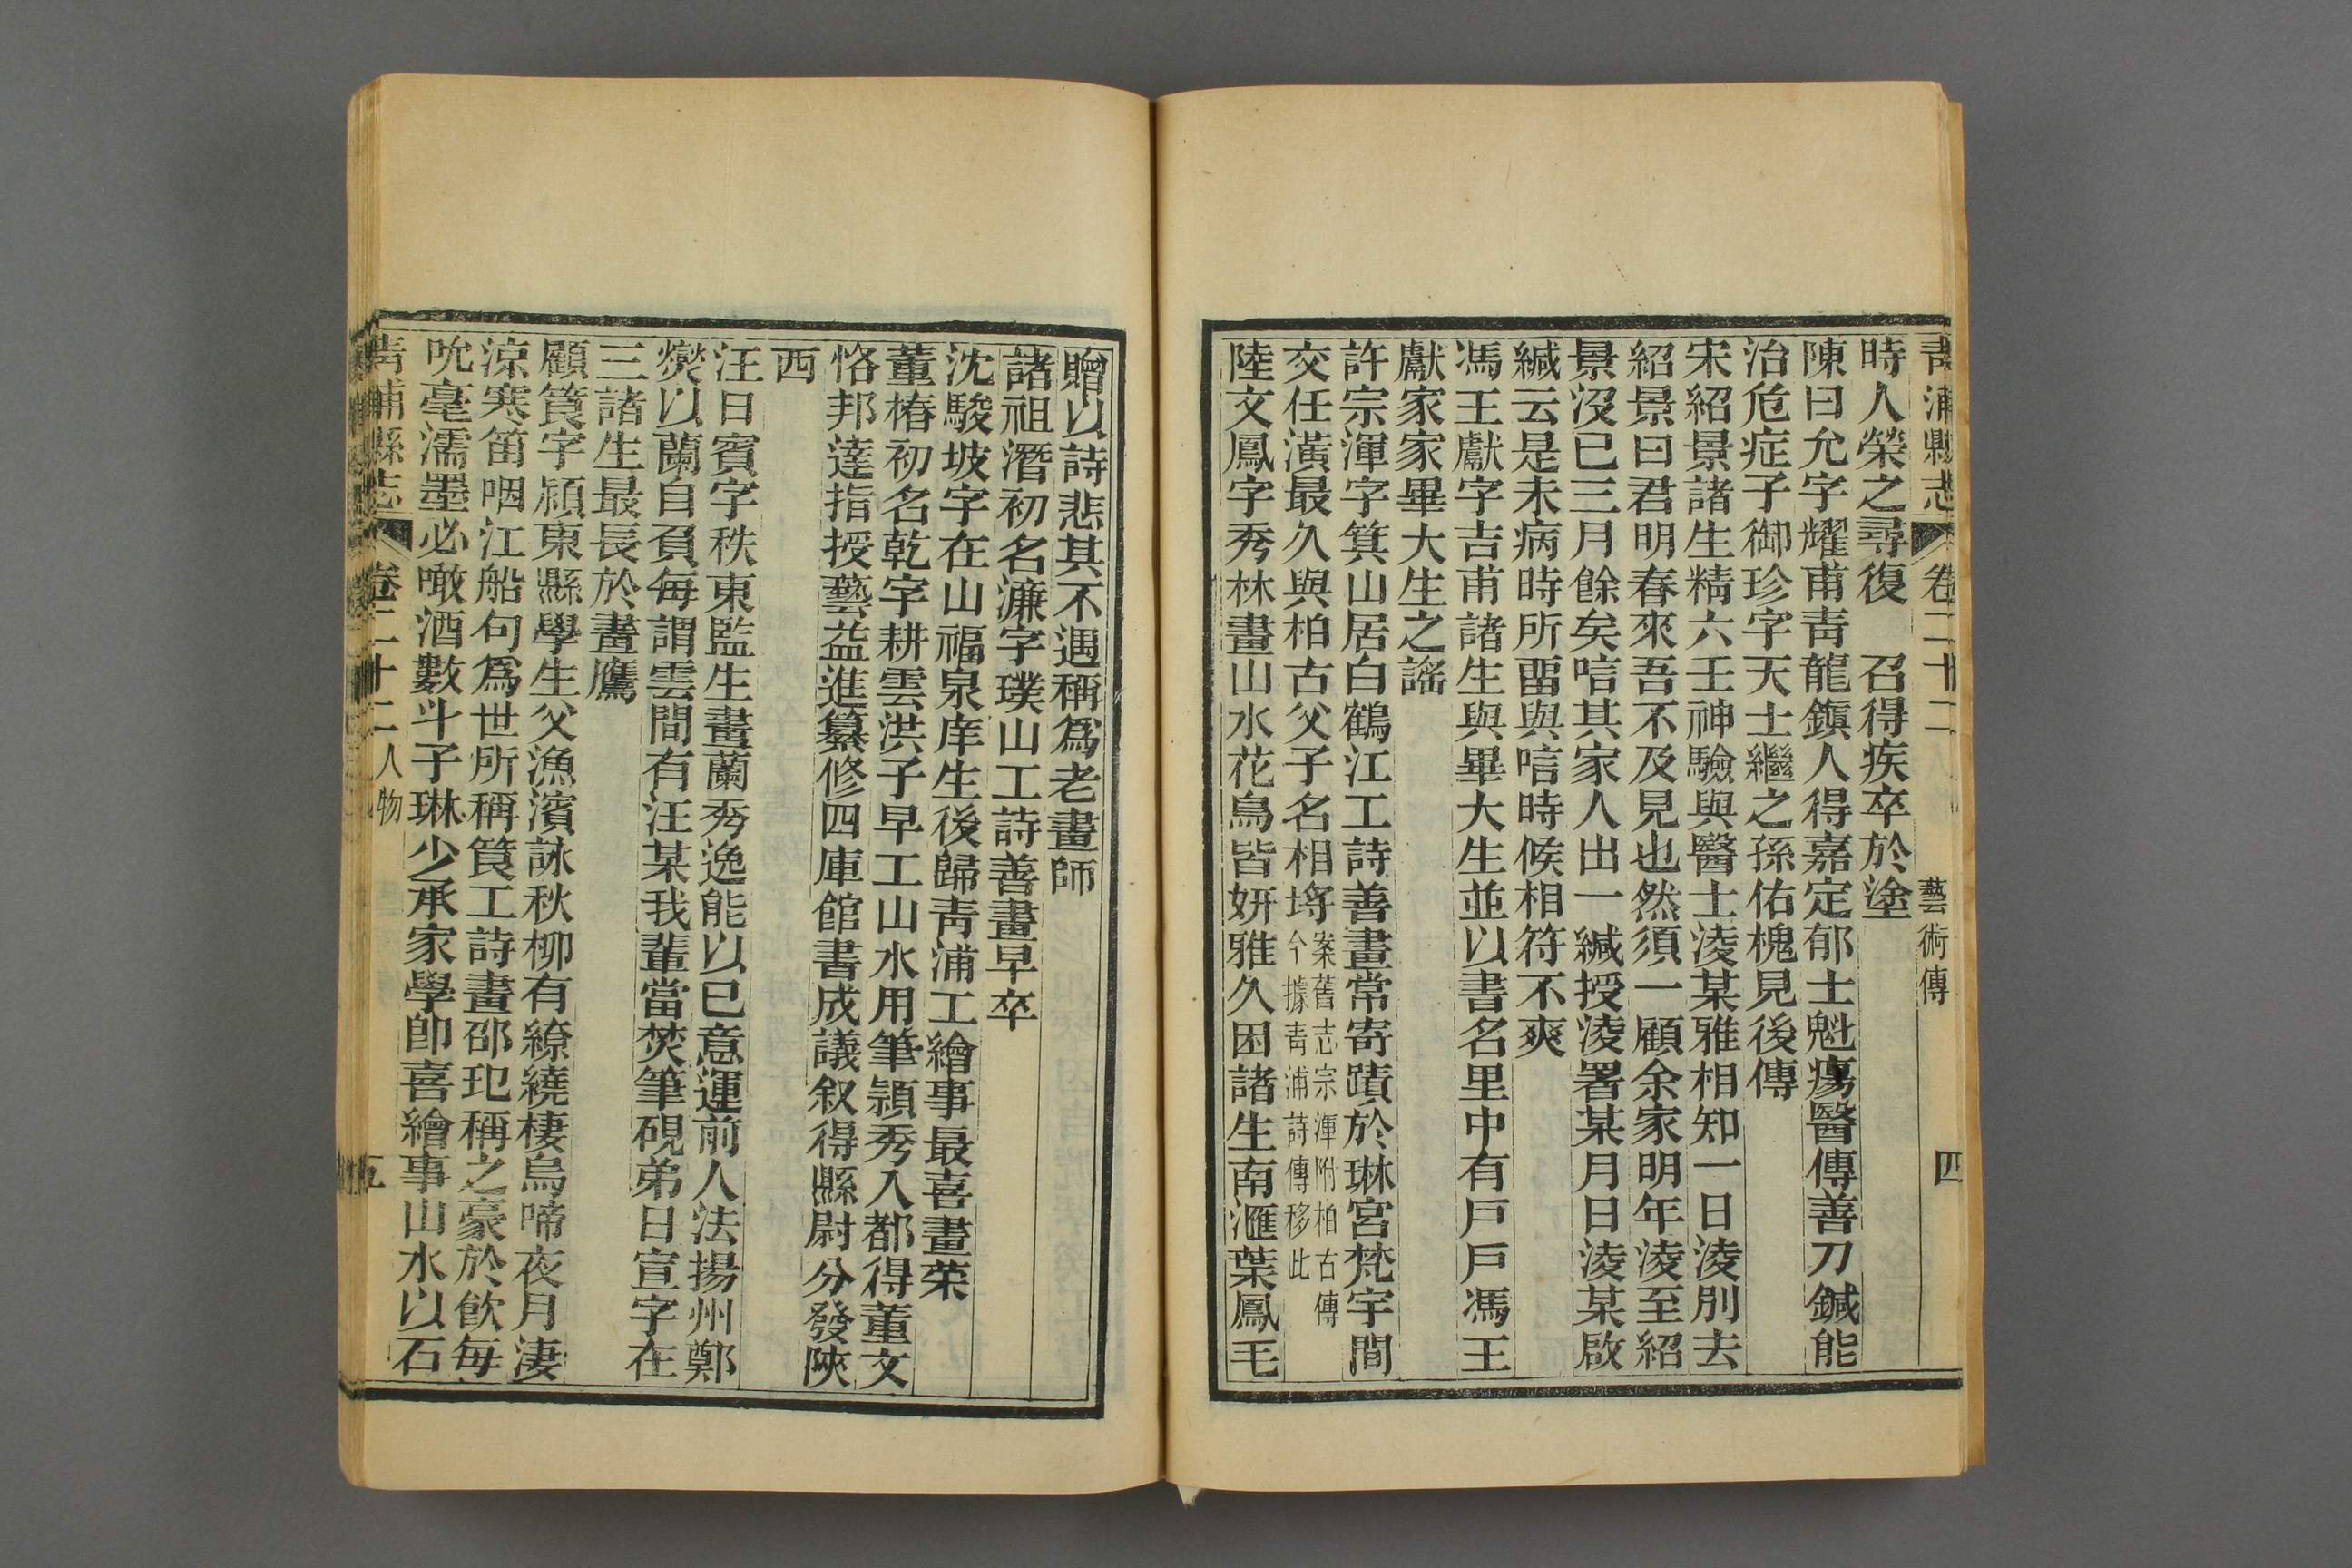 青浦縣志 卷二十二 藝術傳 四
時人榮之尋復 召得疾卒於塗
陳曰允字耀甫靑龍鎭人得嘉定郁士魁瘍醫傳善刀鍼能
治危症子御珍字天士繼之孫佑槐見後傳
宋紹景諸生精六壬神驗與醫士淩某雅相知一日淩別去
紹景曰君明春來吾不及見也然須一顧余家明年淩至紹
景沒已三月餘矣唁其家人出一緘授淩署某月日淩某啟
緘云是未病時所畱與唁時候相符不爽
馮王獻字吉甫諸生與畢大生並以書名里中有戶戶馮王
獻家家畢大生之謠
許宗渾字箕山居白鶴江工詩善畫常寄蹟於琳宮梵宇間
交任潢最久與柏古父子名相埒案舊志宗渾附柏古傳
今據靑浦詩傳移此
陸文鳳字秀林畫山水花鳥皆妍雅久困諸生南滙葉鳳毛
贈以詩悲其不遇稱爲老畫師
諸祖潛初名濂字璞山工詩善畫早卒
沈駿坡字在山福泉庠生後歸靑浦工繪事最喜畫菜
董椿初名乾字耕雲洪子早工山水用筆穎秀入都得董文
恪邦達指授藝益進纂修四庫館書成議叙得縣尉分發陝
西
汪日賓字秩東監生畫蘭秀逸能以已意運前人法揚州鄭
燮以蘭自負每謂雲間有汪某我輩當焚筆硯弟日宣字在
三諸生最長於畫鷹
顧篔字潁東縣學生父漁濱詠秋柳有繚繞棲烏啼夜月淒
涼寒笛咽江船句爲世所稱篔工詩畫邵玘稱之豪於飮每
吮毫濡墨必噉酒數斗子琳少承家學卽喜繪事山水以石
青浦縣志 卷二十二 人物 五